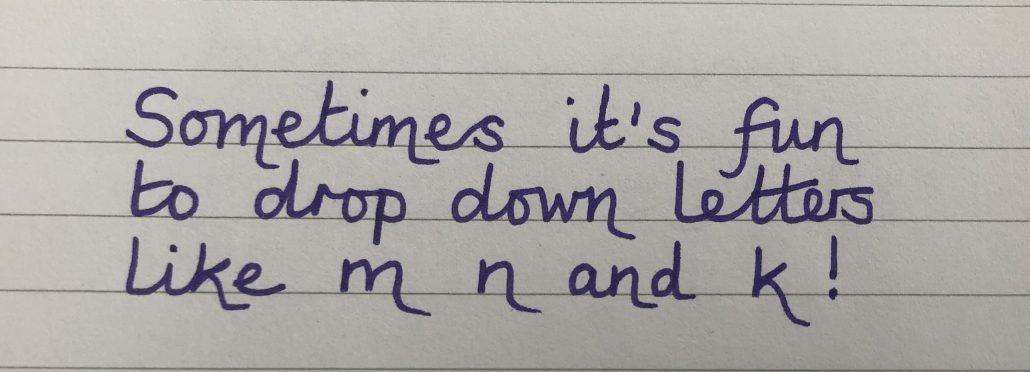 Sometimes it's fun
to drop down letters
like m n and k!